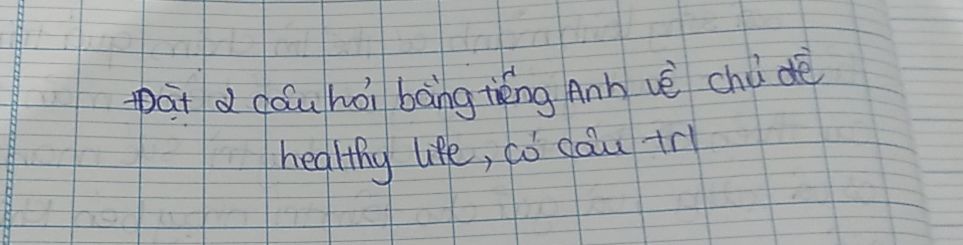 Đặt 2 câu hỏi bằng tiếng Anh về chủ đề
healthy life, có câu trl